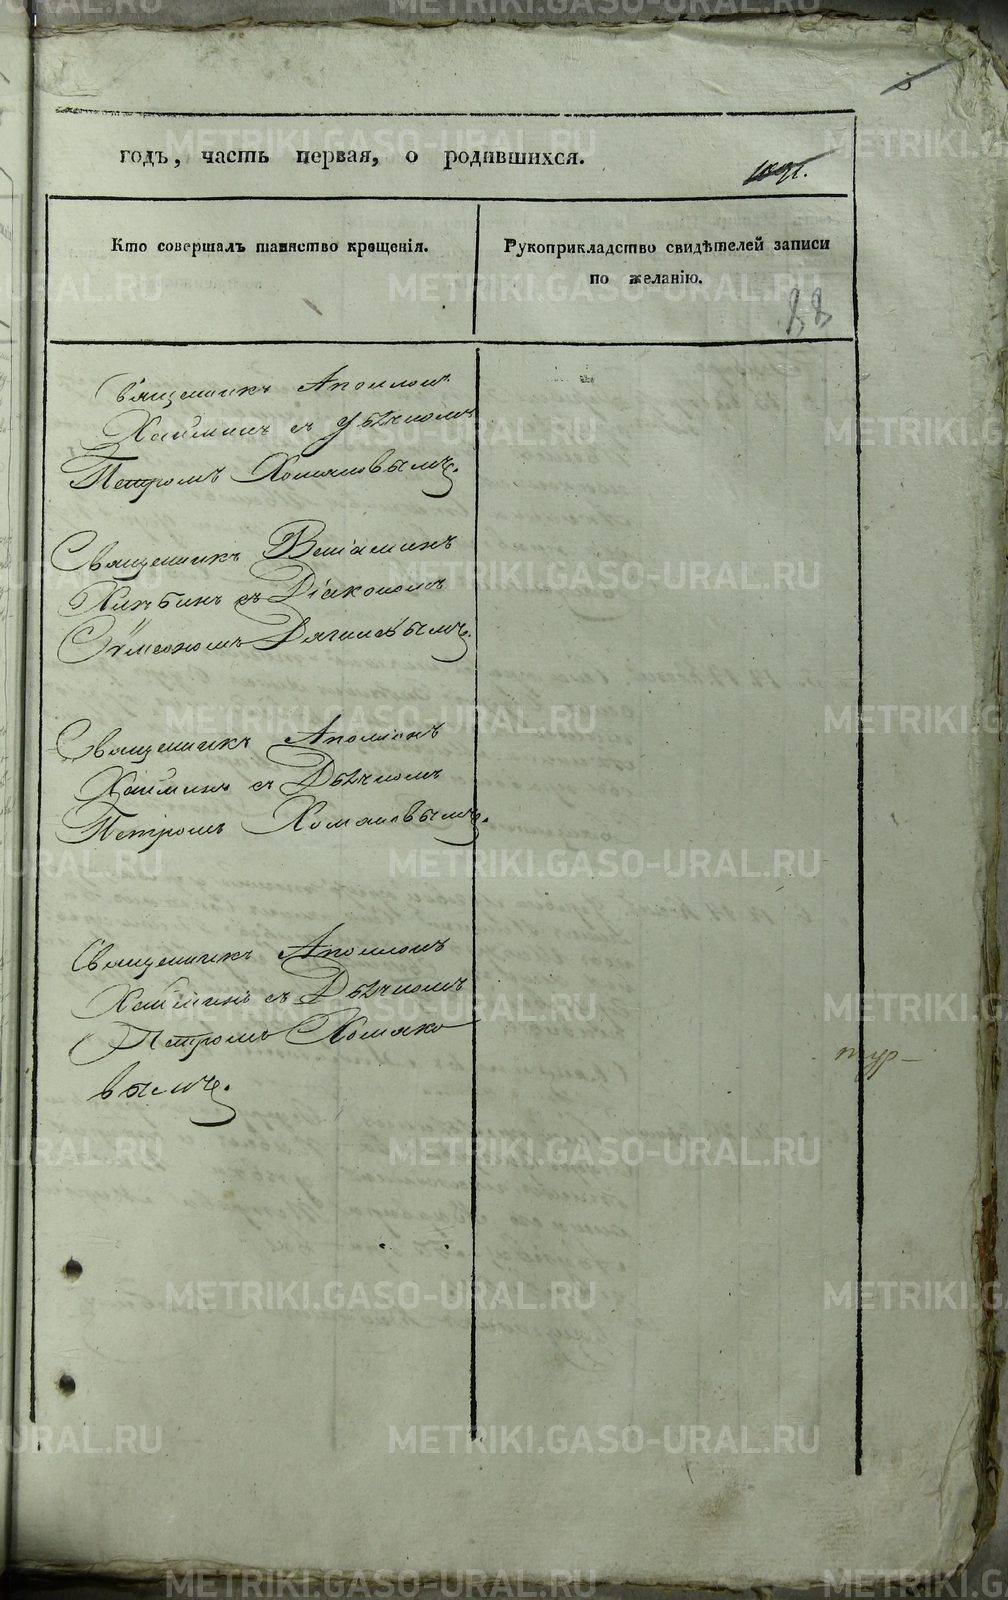 годъ, часть первая, о родившихся.
Кто совершалъ таинство крещенія.
Рукоприкладство свидѣтелей записи
по желанію.
88
Священникъ Аполлонъ
съ Дьячкомъ
Петромъ Хомяковымъ.
Священникъ Веніаминъ
съ Діакономъ
Сѵмеономъ Дягилевымъ.
Священникъ Аполлонъ
съ Дьячкомъ
Петромъ Хомяковымъ.
Священникъ Аполлонъ
съ Дьячкомъ
Петромъ Хомяко
вымъ.
METRIKI.GASO-URAL.RU